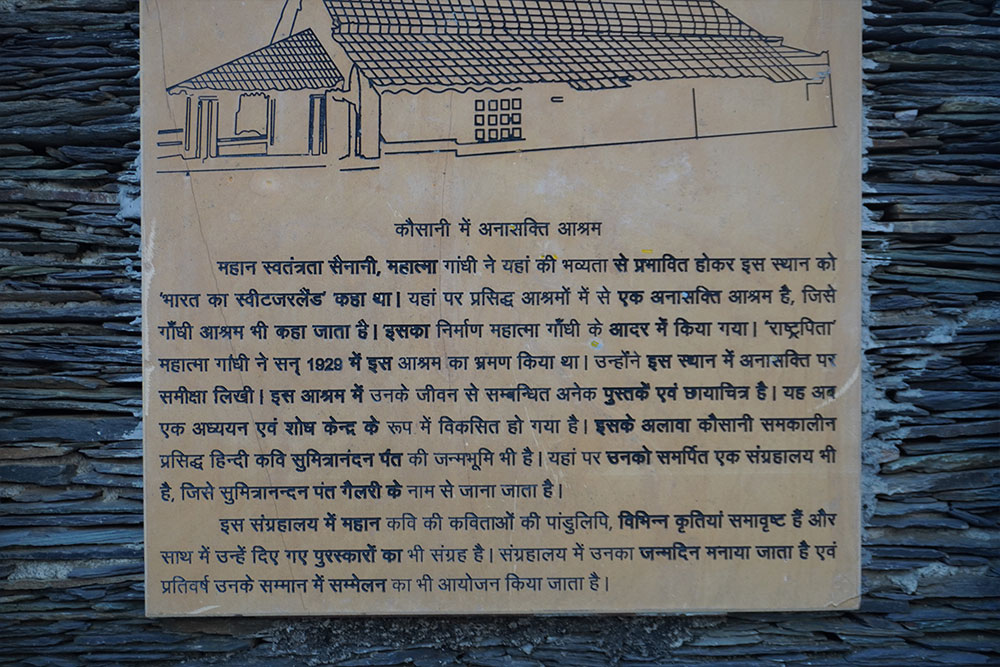 कौसानी में अनासक्ति आश्रम
महान स्वतंत्रता सैनानी, महात्मा गांधी ने यहां की भव्यता से प्रभावित होकर इस स्थान को
‘भारत का स्वीटजरलैंड’ कहा था। यहां पर प्रसिद्ध आश्रमों में से एक अनासक्ति आश्रम है, जिसे
गाँधी आश्रम भी कहा जाता है। इसका निर्माण महात्मा गाँधी के आदर में किया गया। ‘राष्ट्रपिता’
महात्मा गांधी ने सन् 1929 में इस आश्रम का भ्रमण किया था। उन्होंने इस स्थान में अनासक्ति पर
समीक्षा लिखी। इस आश्रम में उनके जीवन से सम्बन्धित अनेक पुस्तकें एवं छायाचित्र है। यह अब
एक अध्ययन एवं शोध केन्द्र के रूप में विकसित हो गया है। इसके अलावा कौसानी समकालीन
प्रसिद्ध हिन्दी कवि सुमित्रानंदन पंत की जन्मभूमि भी है। यहां पर उनको समर्पित एक संग्रहालय भी
है, जिसे सुमित्रानन्दन पंत गैलरी के नाम से जाना जाता है।
इस संग्रहालय में महान कवि की कविताओं की पांडुलिपि, विभिन्न कृतियां समावृष्ट हैं और
साथ में उन्हें दिए गए पुरस्कारों का भी संग्रह है। संग्रहालय में उनका जन्मदिन मनाया जाता है एवं
प्रतिवर्ष उनके सम्मान में सम्मेलन का भी आयोजन किया जाता है।